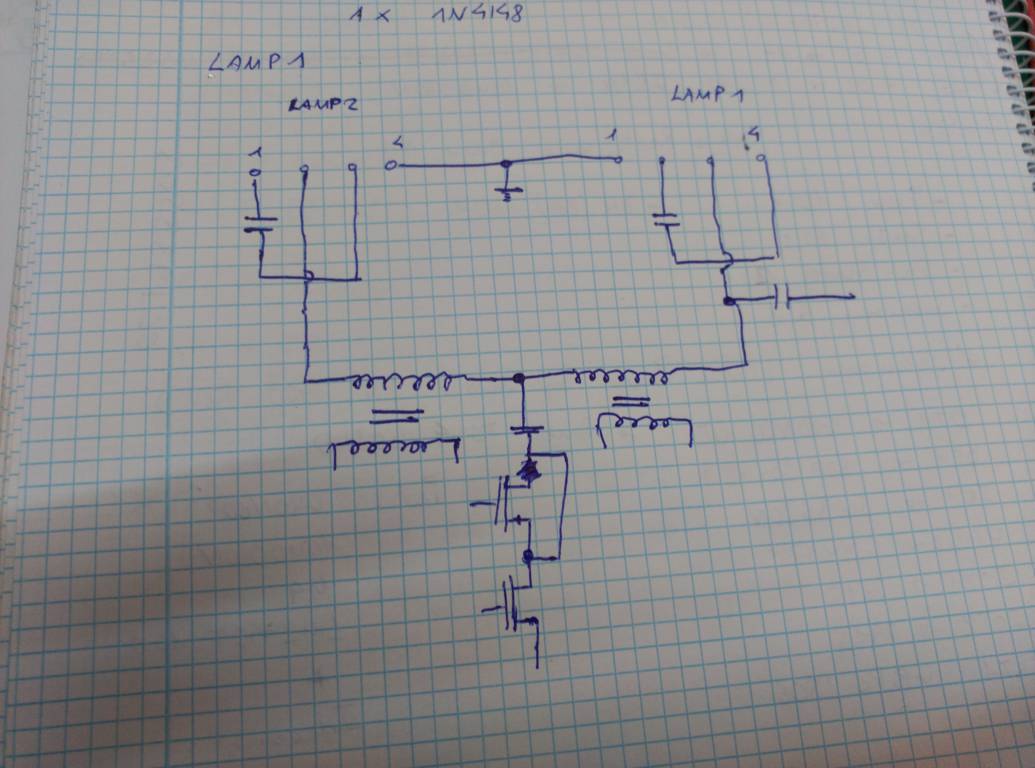 1 x 1N4148
LAMP 1
LAMP 2 LAMP 1
1 4 1 4